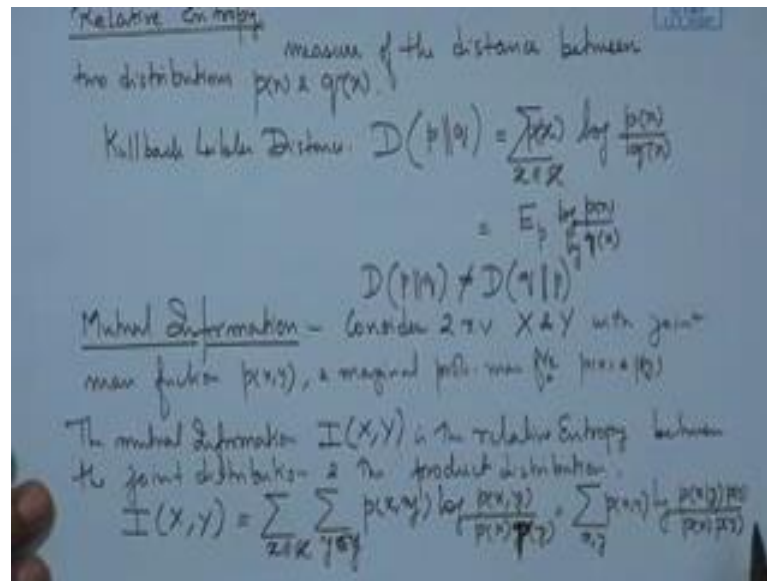 Relative Entropy
measure of the distance between
two distribution p(x) & q(x).
Kullback Leibler Distance. D(p||q) = ∑ x∈X p(x) log p(x)/q(x)
= E_p log p(x)/q(x)
D(p||q) ≠ D(q||p)
Mutual Information - Consider 2 rv X & Y with joint
mass function p(x,y), & marginal prob. mass fn p(x) & p(y)
The mutual Information I(X,Y) is the relative Entropy between
the joint distribution & the product distribution.
I(X,Y) = ∑ x∈X ∑ y∈y p(x,y) log p(x,y)/p(x)p(y) = ∑ x,y p(x,y) log p(x|y)p(y)/p(x)p(y)